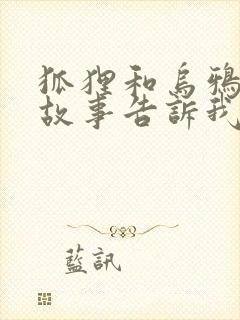 狐狸和烏鴉
故事告訴我
藍訊